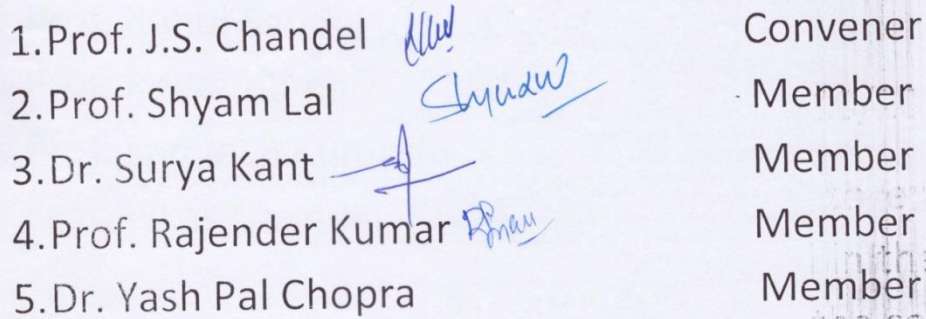 1.Prof. J.S. Chandel Convener
2.Prof. Shyam Lal Shyam Member
3.Dr. Surya Kant Member
4.Prof. Rajender Kumar Member
5.Dr. Yash Pal Chopra Member